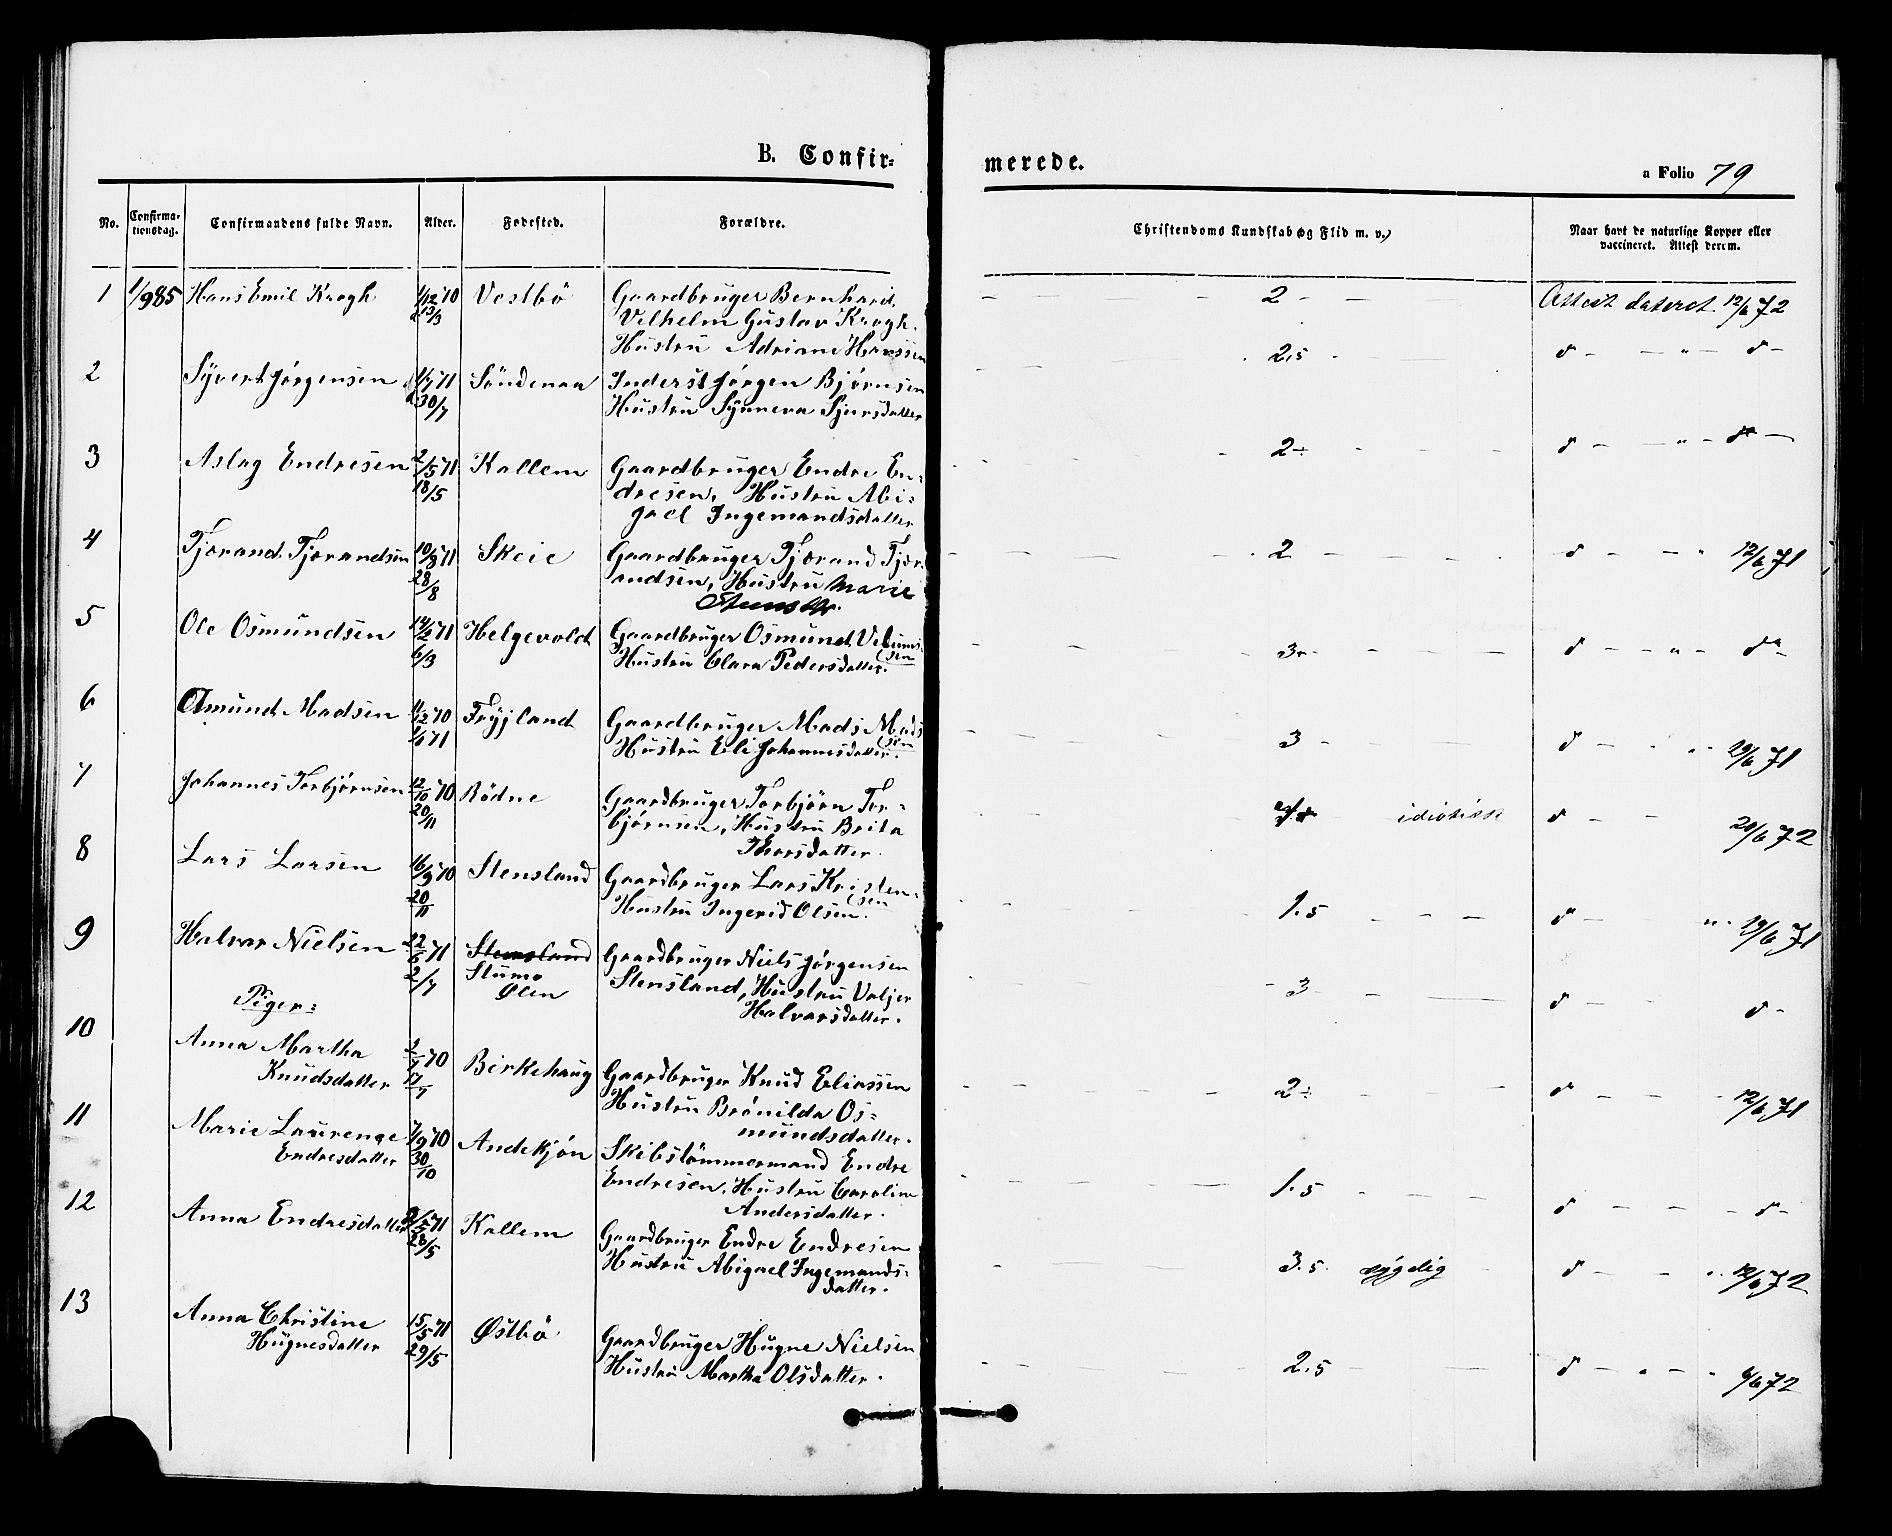 B. Confir=
merede.
a Folio 79
No. Confirma-tionsdag. Confirmandens fulde Navn. Alder. Fødested. Forældre. Christendoms Kundskab og Flid m. v.) Naar havt de naturlige Kopper eller vaccineret. Attest derom.
1 1/985 Hans Emil Krogh 1/12 70 Vestbö Gaardbruger Bernhard 2 Attest dateret 12/6 72
13/3 Vilhelm Gustav Krogh.
Hustru Adriane Hanssen
2 Syvert Jørgensen 1/7 71 Söndenaa Inderst Jørgen Bjørnsen 2.5 d - " - d -
30/7 Hustru Synneva Sjursdatter
3 Aslag Endresen 2/5 71 Kallem Gaardbruger Endre En- 2÷ d - " -
18/5 dresen, Hustru Abi-
gael Ingemandsdatter
4 Tjorand Tjorandsen 10/8 71 Skeie Gaardbruger Tjorand Tjor 2 d - - " 12/6 71
28/8 andsen, Hustru Marie
5 Ole Osmundsen 14/2 71 Helgevold Gaardbruger Osmund 3÷ d - - " -
6/3 Hustru Clara Pedersdatter.
6 Amund Madsen 11/12 70 Fryjland Gaardbruger Mads Mads 3 d - 29/6 71
1/1 71 Hustru Eli Johannesdatter. sen
7 Johannes Torbjørnsen 12/10 70 Rödne Gaardbruger Torbjörn Tor- idiotisk d - - 20/6 72
20/11 bjørnsen, Hustru Brita
Thorsdatter.
8 Lars Larsen 16/9 70 Stensland Gaardbruger Lars Kristen- 1.5 d - " 29/6 71
20/11 Hustru Ingerid Olsen. sen
9 Halvar Nielsen 22/6 71 Stensland Gaardbruger Niels Jørgensen 3 d - - d -
2/7 Stumo Stensland, Hustru Valjer
Ølen Halvarsdatter.
Piger:
10 Anna Martha 2/7 70 Birkehaug Gaardbruger Knud Eliassen 2÷ d - - - 12/6 71
Knudsdatter 17/7 Hustru Brönilda Os-
mundsdatter.
11 Marie Laurenze 7/9 70 Andekjøn Skibstömmermand Endre 1.5 d - - - d-
Endresdatter 30/10 Endresen, Hustru Caroline
Andersdatter.
12 Anna Endresdatter 2/5 71 Kallem Gaardbruger Endre Endresen 3.5 sygelig d - -
28/5 Hustru Abigael Ingemands-
datter.
13 Anna Christine 15/5 71 Østbö Gaardbruger Hugne Nielsen 2.5 d - 9/6 72
Hugnesdatter 29/5 Hustru Martha Olsdatter.